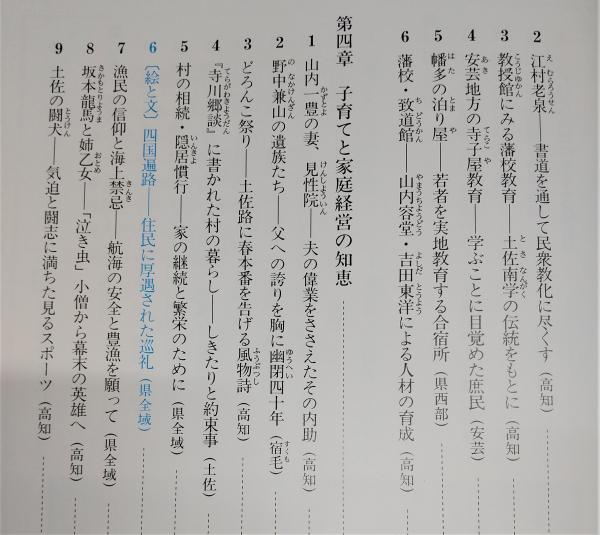 2 江村老泉――書道を通して民衆教化に尽くす（高知）
3 教授館にみる藩校教育――土佐南学の伝統をもとに（高知）
4 安芸地方の寺子屋教育――学ぶことに目覚めた庶民（安芸）
5 幡多の泊り屋――若者を実地教育する合宿所（県西部）
6 藩校・致道館――山内容堂・吉田東洋による人材の育成（高知）
第四章 子育てと家庭経営の知恵
1 山内一豊の妻、見性院――夫の偉業をささえたその内助（高知）
2 野中兼山の遺族たち――父への誇りを胸に幽閉四十年（宿毛）
3 どろんこ祭り――土佐路に春本番を告げる風物詩（高知）
4 『寺川郷談』に書かれた村の暮らし――しきたりと約束事（土佐）
5 村の相続・隠居慣行――家の継続と繁栄のために（県全域）
6 〔絵と文〕四国遍路――住民に厚遇された巡礼（県全域）
7 漁民の信仰と海上禁忌――航海の安全と豊漁を願って（県全域）
8 坂本龍馬と姉乙女――「泣き虫」小僧から幕末の英雄へ（高知）
9 土佐の闘犬――気迫と闘志に満ちた見るスポーツ（高知）